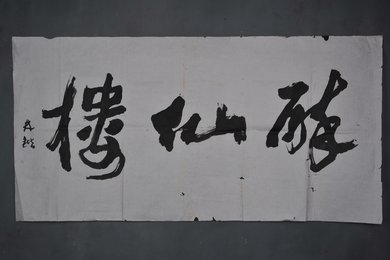 醉仙樓